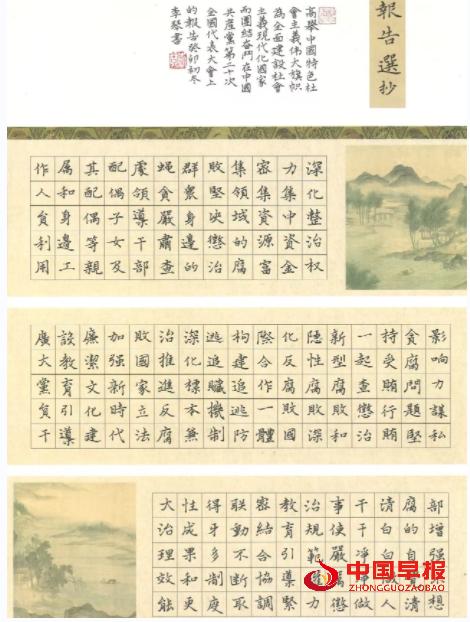 報告選抄
高舉中國特色社
會主義偉大旗幟
為全面建設社會
主義現代化國家
而團結奮鬥在中國
共產黨第二十次
全國代表大會上
的報告癸卯初冬
李琴書
深化整治權
力集中資金
密集資源富
集領域的腐
敗堅決懲治
群眾身邊的
蝇貪嚴肅查
處領導干部
配偶子女及
其配偶等親
属和身邊工
作人員利用
影響力謀私
貪腐問題堅
持受賄行賄
一起查懲治
新型腐敗和
隱性腐敗深
化反腐敗國
際合作一體
构建追逃防
逃追贓機制
深化標本兼
治推進反腐
敗國家立法
加强新時代
廉潔文化建
設教育引導
廣大黨員干
部增强不想
腐的自覺清
清白白做人
干干净净做
事使嚴厲懲
治規範權力
教育引導緊
密結合協調
聯動不断取
得更多制度
性成果和更
大治理效能
中国早报
ZHONGGUOZAOBAO